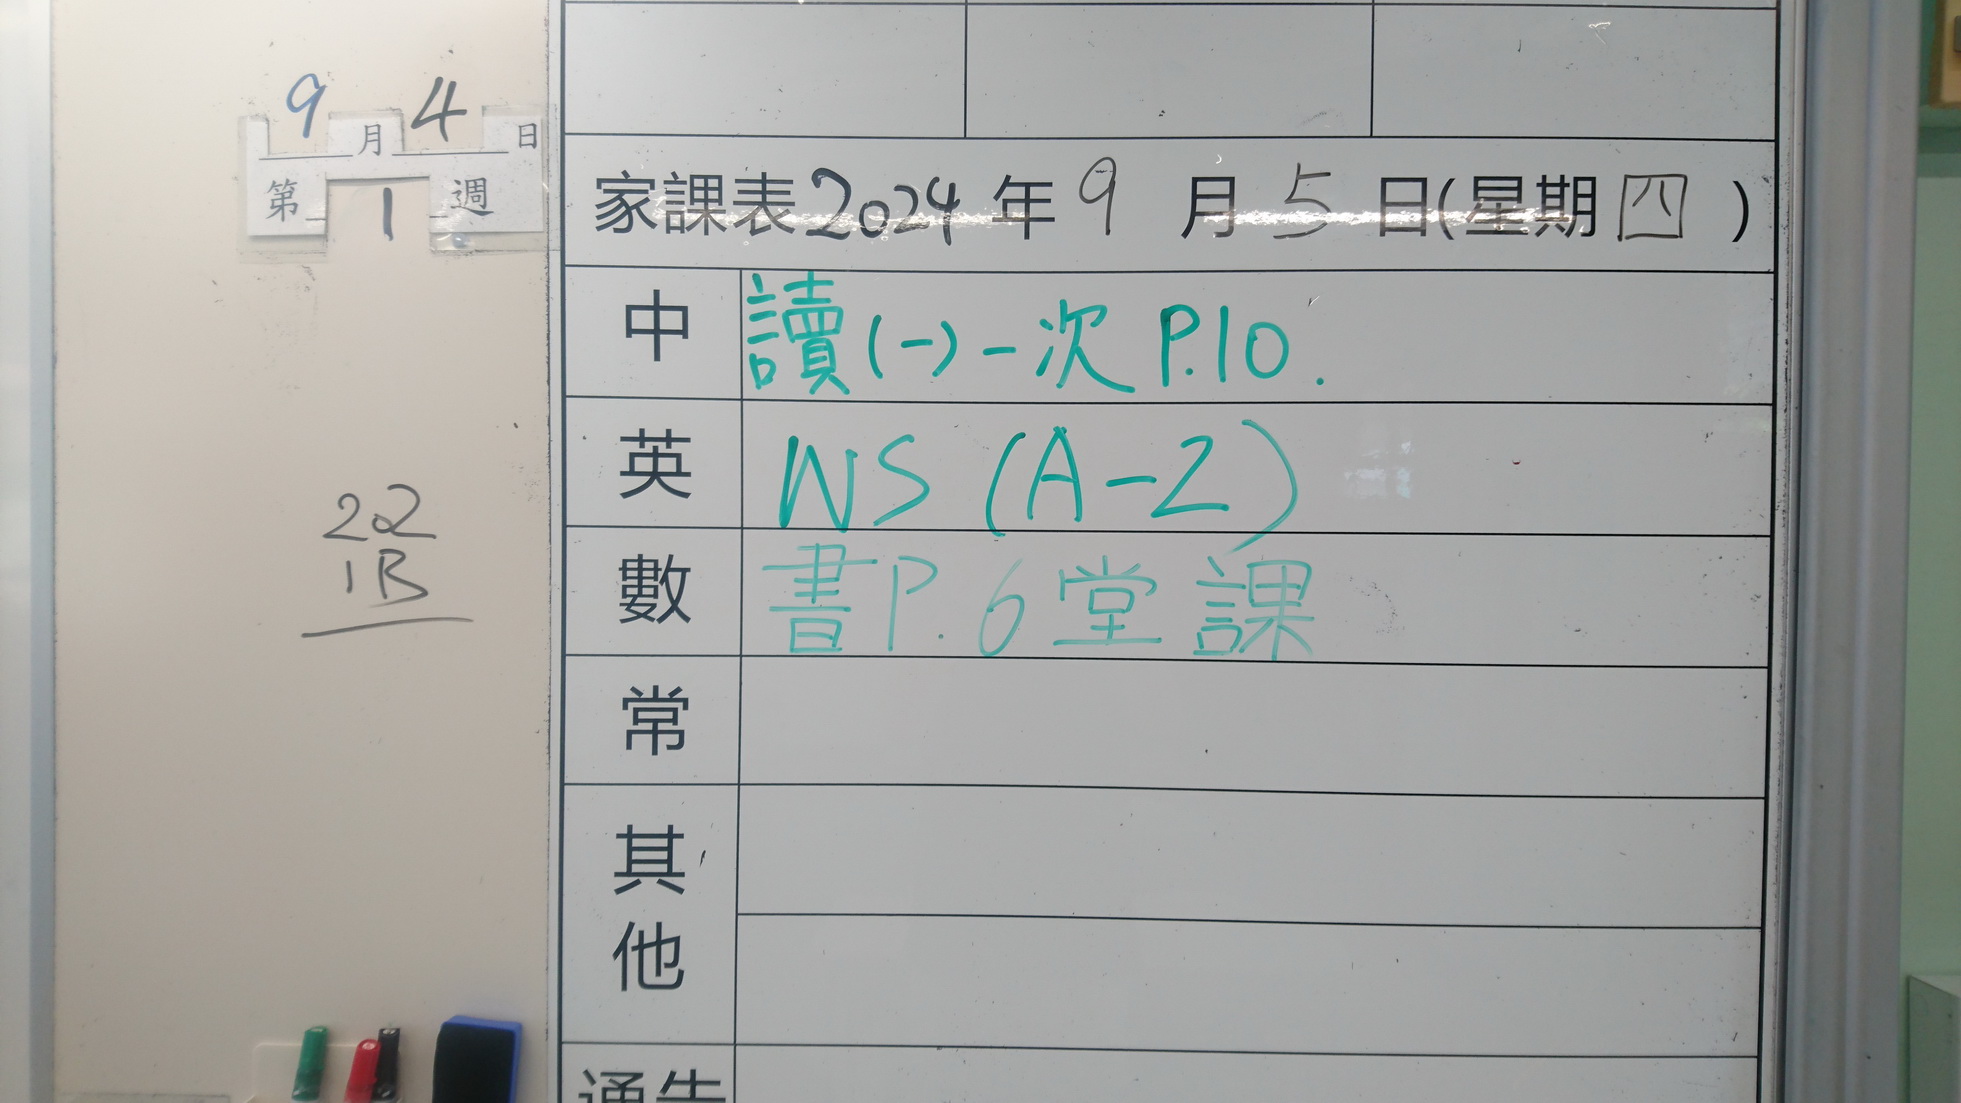 9月4日
第1週
22
1B
家課表2024年9月5日(星期四)
中 讀(一)一次 P.10.
英 WS (A-Z)
數 書P.6堂課
常
其他
通告